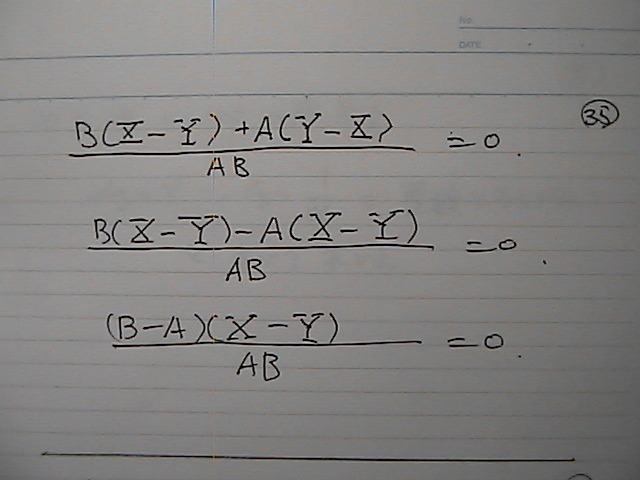 No.
DATE
35
B(X-Y)+A(Y-X)
AB
=0.
B(X-Y)-A(X-Y)
AB
=0.
(B-A)(X-Y)
AB
=0.